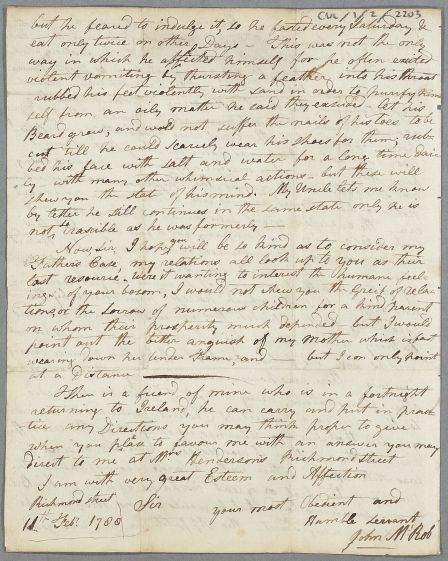 CUL/1/2/2203
but he feared to indulge it, so he fasted every Saturday &
eat only twice on other Days — This was not the only
way in which he afflicted himself for he often excited
violent vomiting by thrusting a feather into his throat
rubbed his feet violently with sand in order to purify him
self from an oily matter he said they exsuded. let his
Beard grow, and would not suffer the nails of his toes to be
cut till he could scarcely wear his shoes for them; rub-
bed his face with salt and water for a long time dai-
ly — with many other whimsical actions — but these will
shew you the state of his mind. My Uncle lets me know
by letter he still continues in the same state only he is
not, irassible as he was formerly —
Now, sir, I hope you will be so kind as to consider my
Fathers Case, my relations all look up to you as their
last resource. Were it wanting to interest the humane feel-
ings of your bosom, I would not shew you the Greif of rela-
tions, or the sorrow of numerous children for a kind parent
on whom their prosperity much depended but I would
point out the bitter anguish of my Mother which is fast
wearing down her tender Frame, and — but I can only point
at a distance —
There is a friend of mine who is in a fortnight
returning to Ireland, he can carry and put in prac-
tice any Directions you may think proper to give
When you please to favour me with an answer you may
direct to me at Mrs Hendersons Richmond street
I am with very great Esteem and Affection
Richmond street Sir your most Obedient and
11th Feb. 1788 Humble servant
John McRob